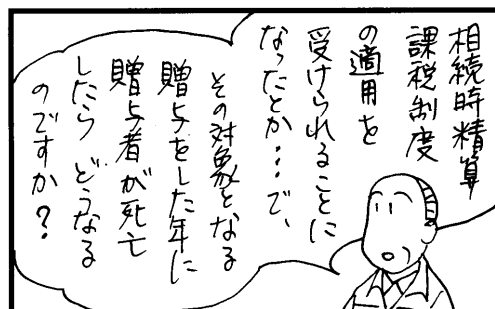 相続時精算
課税制度
の適用を
受けられることに
なったとか…で、
その対象となる
贈与をした年に
贈与者が死亡
したら どうなる
のですか？